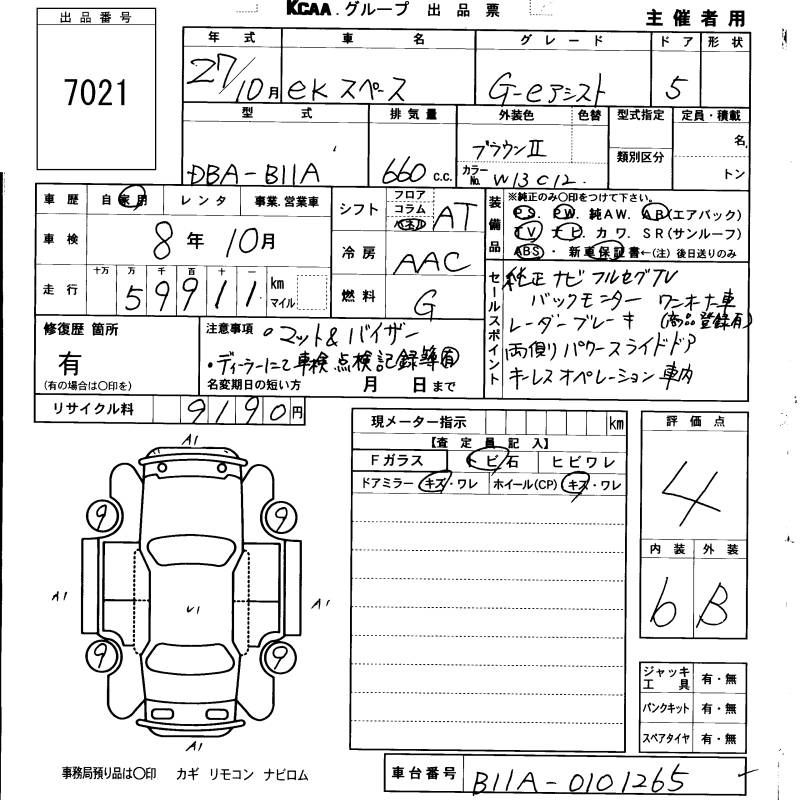 KCAA.グループ 出品票
主催者用
出品番号
7021
年式 車名 グレード ドア 形状
27/10月 eKスペース G-eアシスト 5
型式 排気量 外装色 色替 型式指定 定員・積載
DBA-B11A 660 c.c. ブラウンII 名
カラーNo. W13C12. 類別区分 トン
車歴 自家用 レンタ 事業.営業車
車検 8年10月
走行 十万 万 千 百 十 一
59911 km マイル
シフト フロア コラム パネル AT
冷房 AAC
燃料 G
装備品
※純正のみ○印をつけて下さい。
PS. PW. 純AW. AB(エアバック)
TV ナビ カワ. SR(サンルーフ)
ABS ・ 新車保証書←(注)後日送りのみ
セールスポイント
純正ナビ フルセグTV
バックモニター ワンオーナー車
レーダーブレーキ (商品登録有)
両側パワースライドドア
キーレスオペレーション 車内
修復歴 箇所
有
(有の場合は○印を)
注意事項 ・マット&バイザー
・ディーラーにて車検点検記録簿有
名変期日の短い方 月 日まで
リサイクル料 9190円
現メーター指示 km
【査定員記入】
Fガラス トビ石 ヒビワレ
ドアミラー キズ・ワレ ホイール(CP) キズ・ワレ
評価点
4
内装 外装
6 B
A1
9 9
A1 U1 A1
9 9
A1
ジャッキ工具 有・無
パンクキット 有・無
スペアタイヤ 有・無
事務局預り品は○印 カギ リモコン ナビロム
車台番号 B11A-0101265